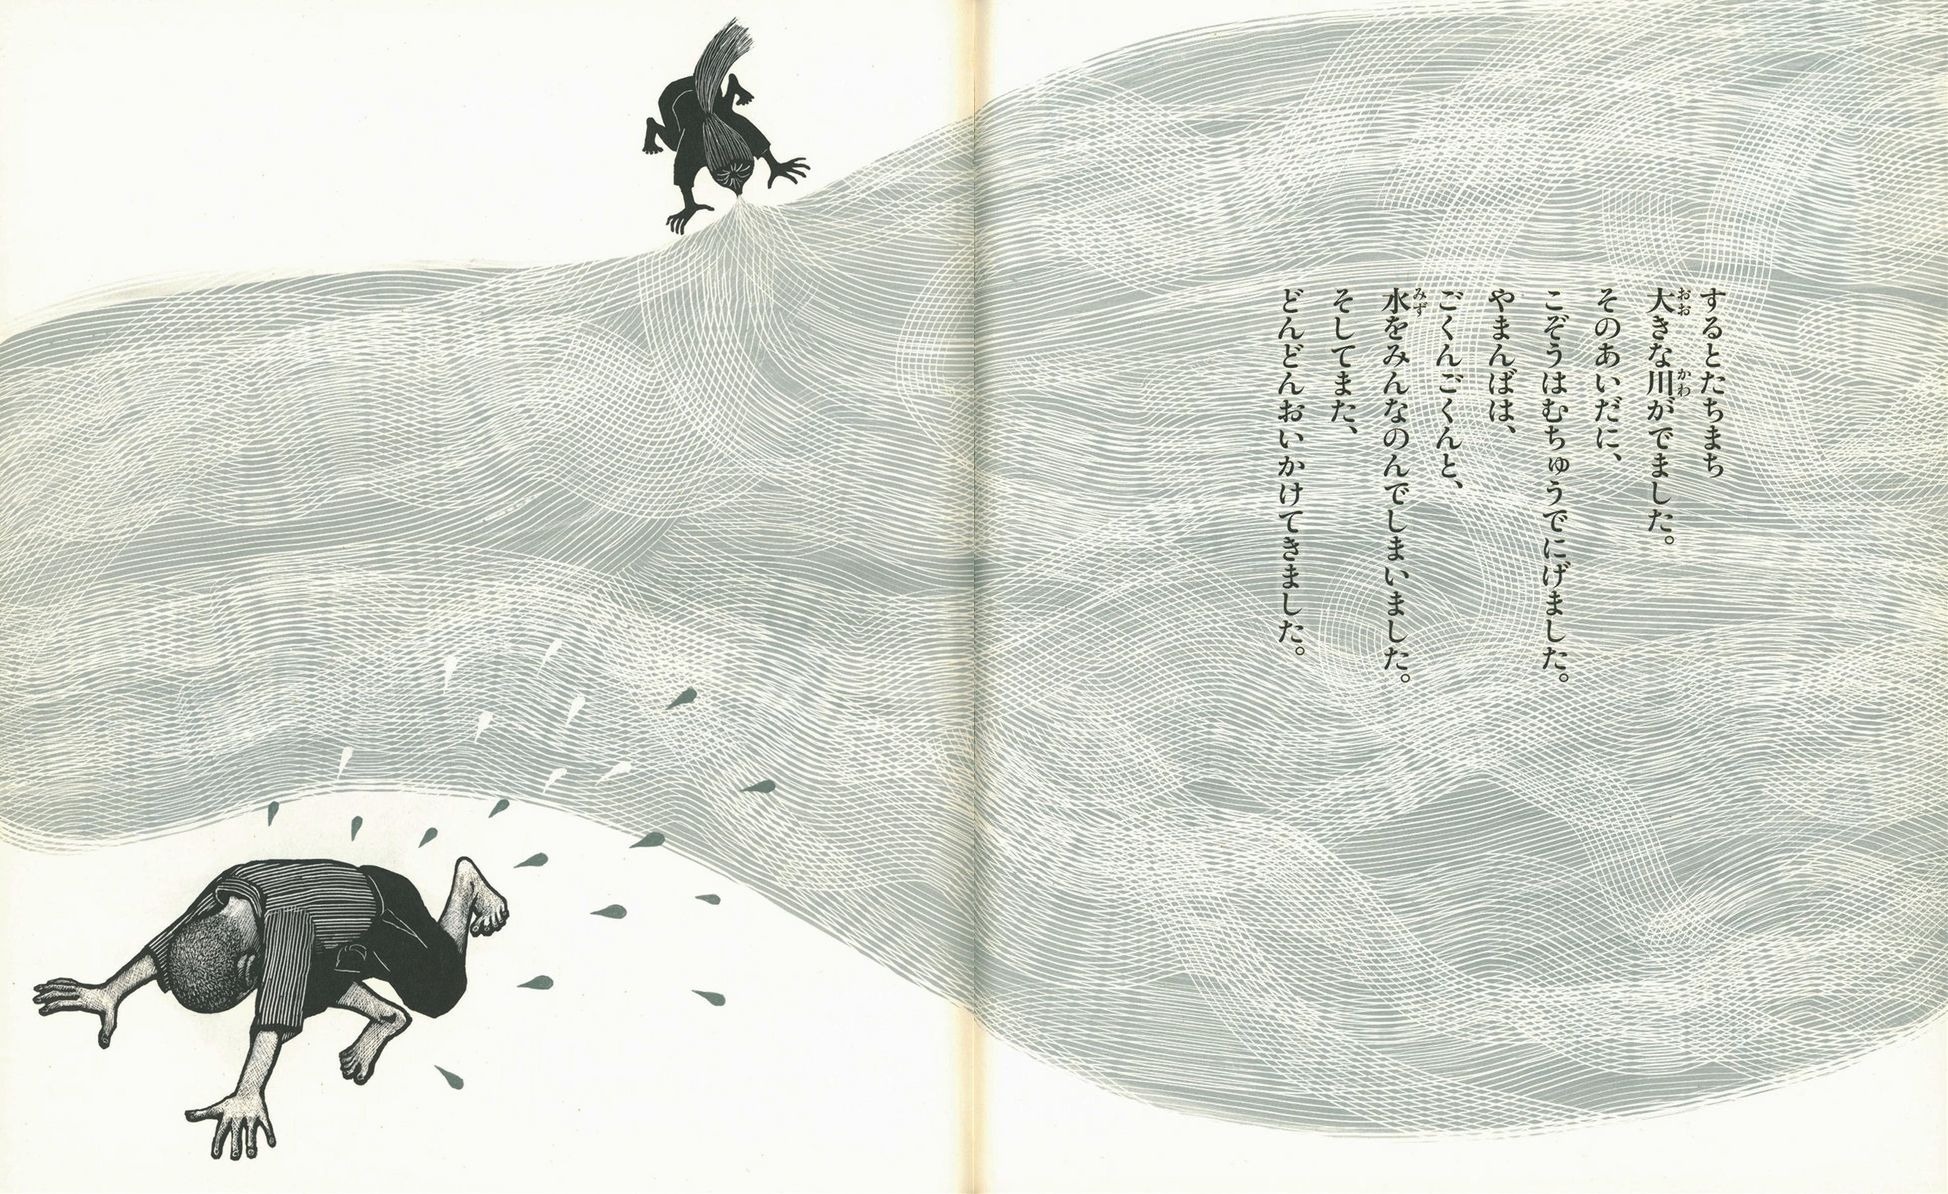 するとたちまち
大きな川がでました。
そのあいだに、
こぞうはむちゅうでにげました。
やまんばは、
ごくんごくんと、
水をみんなのんでしまいました。
そしてまた、
どんどんおいかけてきました。
おお
かわ
みず